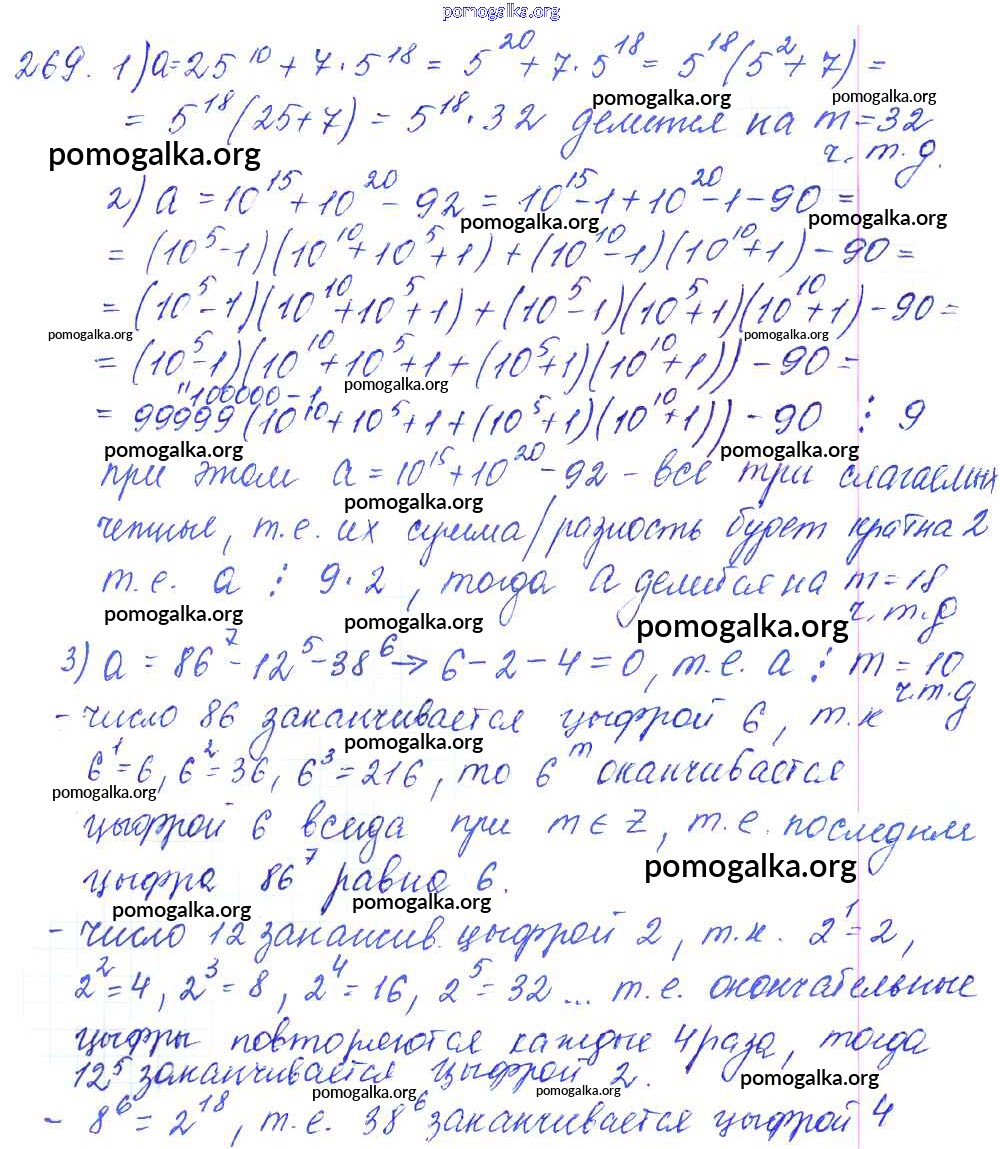 pomogalka.org
269. 1) a = 25^10 + 7·5^18 = 5^20 + 7·5^18 = 5^18(5^2 + 7) =
pomogalka.org pomogalka.org
= 5^18(25+7) = 5^18·32 делится на m = 32
pomogalka.org
ч.т.д.
2) a = 10^15 + 10^20 - 92 = 10^15 - 1 + 10^20 - 1 - 90 =
pomogalka.org pomogalka.org
= (10^5 - 1)(10^10 + 10^5 + 1) + (10^10 - 1)(10^10 + 1) - 90 =
= (10^5 - 1)(10^10 + 10^5 + 1) + (10^5 - 1)(10^5 + 1)(10^10 + 1) - 90 =
pomogalka.org pomogalka.org
= (10^5 - 1)(10^10 + 10^5 + 1 + (10^5 + 1)(10^10 + 1)) - 90 =
pomogalka.org
"100000 - 1
= 99999(10^10 + 10^5 + 1 + (10^5 + 1)(10^10 + 1)) - 90 ⋮ 9
pomogalka.org pomogalka.org
при этом a = 10^15 + 10^20 - 92 - все три слагаемых
pomogalka.org
четные, т.е. их сумма/разность будет кратна 2
т.е. a ⋮ 9·2, тогда a делится на m = 18
pomogalka.org pomogalka.org pomogalka.org
ч.т.д
3) a = 86^7 - 12^5 - 38^6 → 6 - 2 - 4 = 0, т.е. a ⋮ m = 10
ч.т.д
- число 86 заканчивается цыфрой 6, т.к
pomogalka.org
6^1 = 6, 6^2 = 36, 6^3 = 216, то 6^m оканчивается
pomogalka.org
цыфрой 6 всегда при m ∈ Z, т.е. последняя
pomogalka.org
цыфра 86^7 равна 6.
pomogalka.org pomogalka.org
- число 12 заканчив. цыфрой 2, т.к. 2^1 = 2,
2^2 = 4, 2^3 = 8, 2^4 = 16, 2^5 = 32 ... т.е. окончательные
цыфры повторяются каждые 4 раза, тогда
12^5 заканчивается цыфрой 2.
pomogalka.org pomogalka.org pomogalka.org
- 8^6 = 2^18, т.е. 38^6 заканчивается цыфрой 4